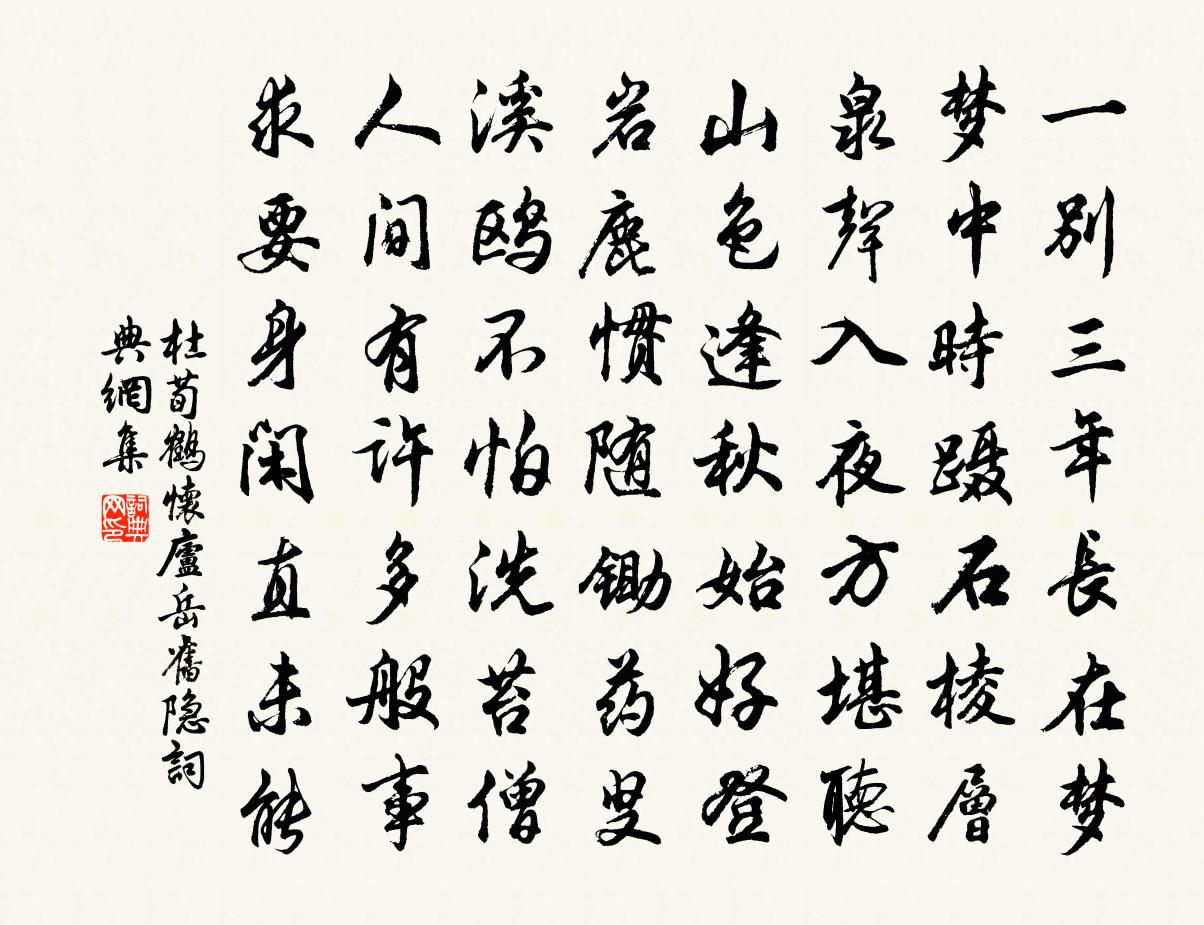 一别三年長在梦
梦中時蹑石棱層
泉聲入夜方堪聽
山色逢秋始好登
岩鹿惯随锄药叟
溪鸥不怕洗苔僧
人间有许多般事
求要身闲直未能
杜荀鶴懷廬岳舊隐詞
典網集
詞典
网印